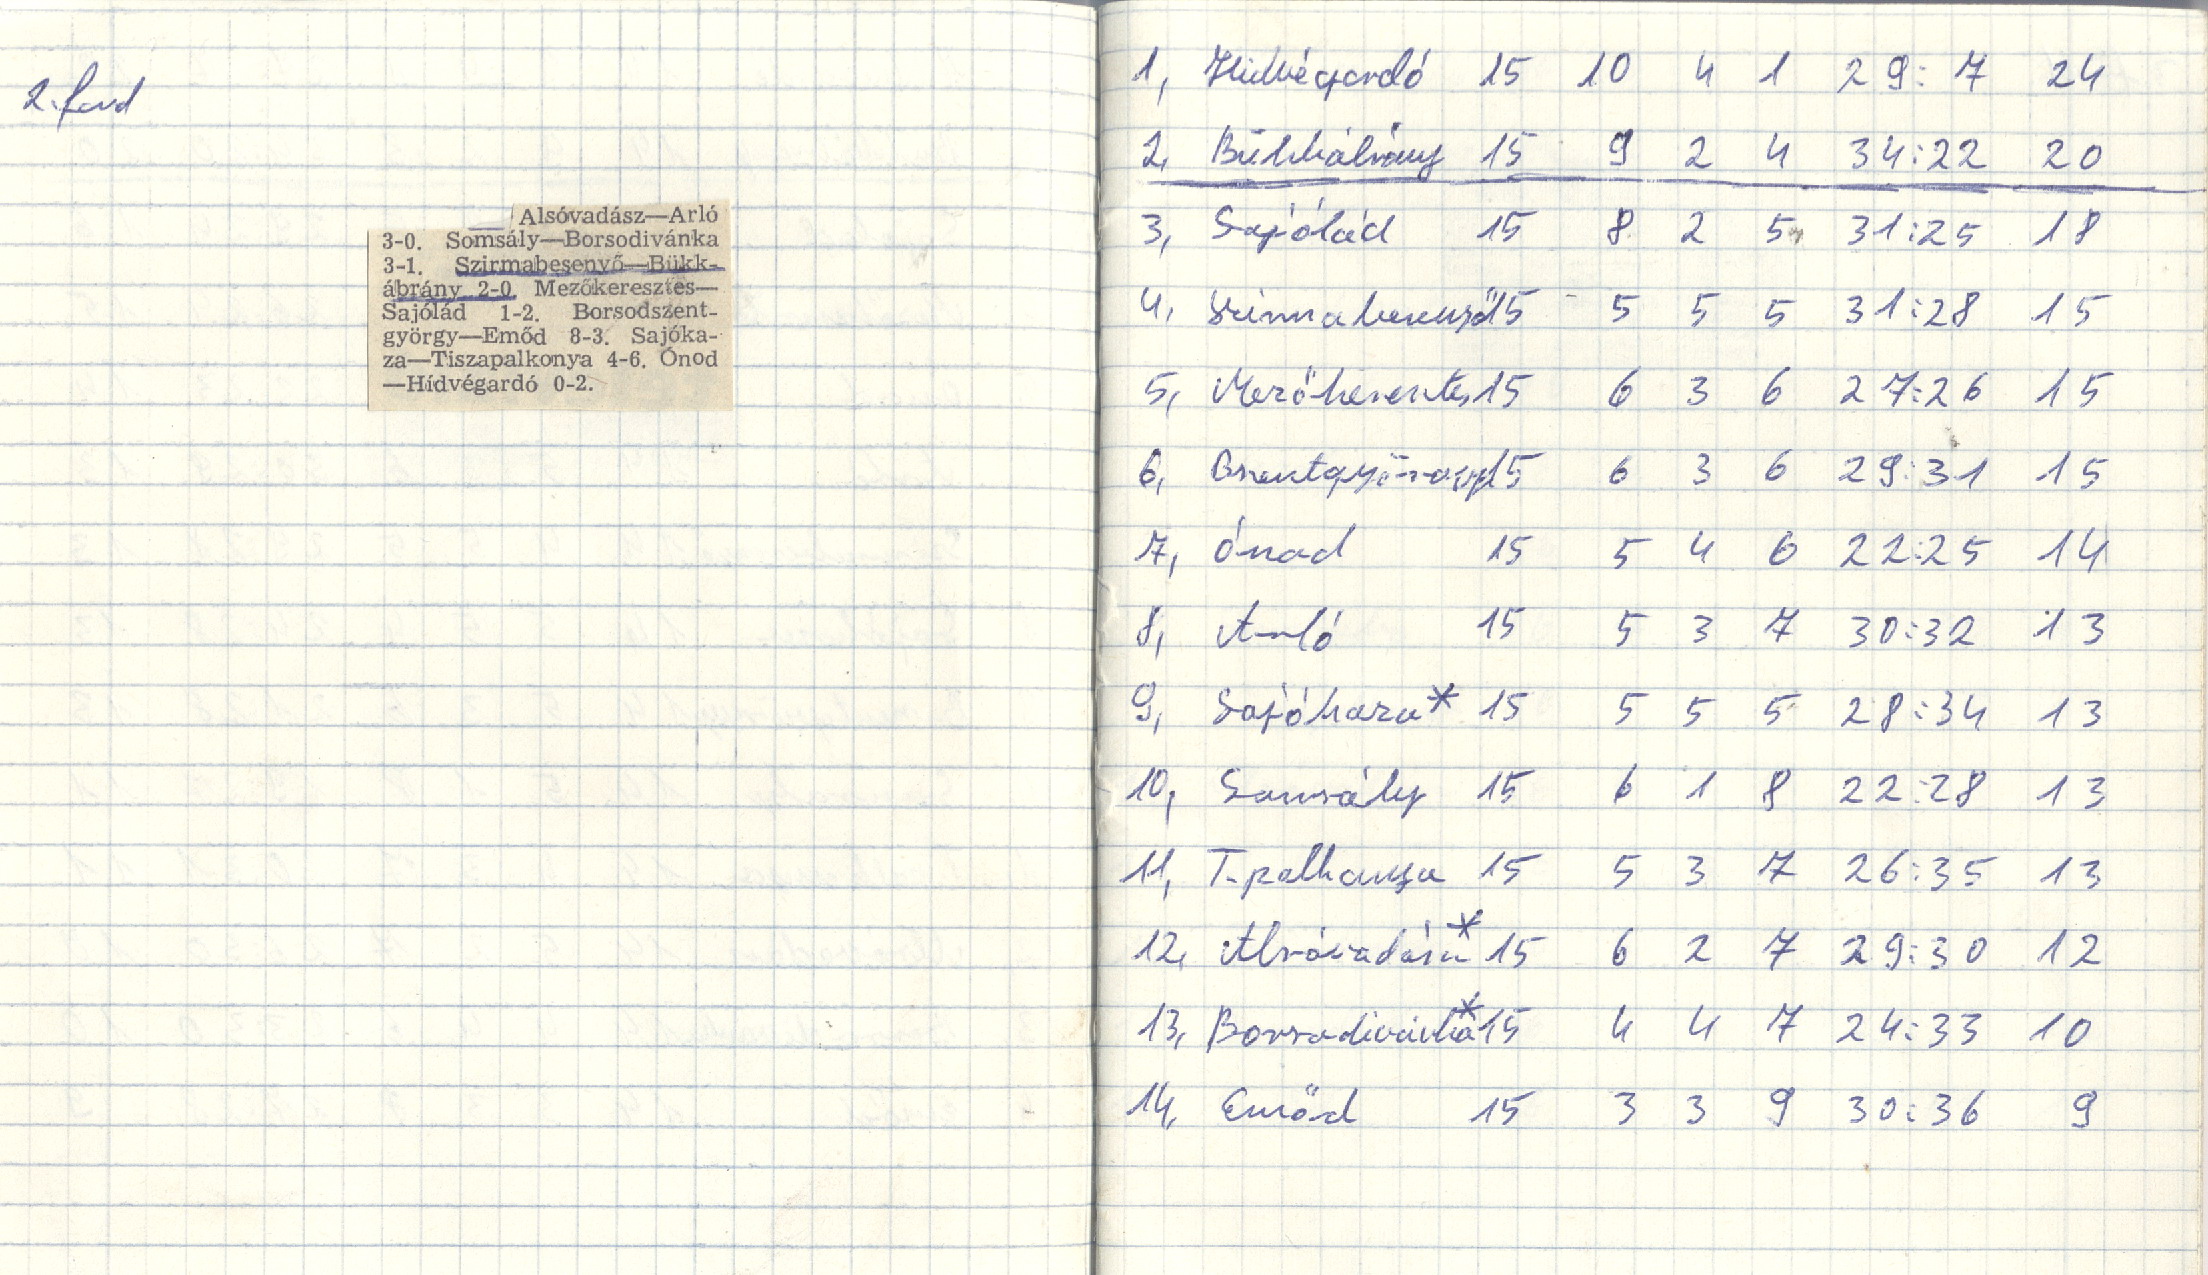 2. ford
Alsóvadász—Arló
3-0. Somsály—Borsodivánka
3-1. Szirmabesenyő—Bükk-
ábrány 2-0. Mezőkeresztes—
Sajólád 1-2. Borsodszent-
györgy—Emőd 8-3. Sajóka-
za—Tiszapalkonya 4-6. Ónod
—Hídvégardó 0-2.
1, Hídvégardó 15 10 4 1 29:7 24
2, Bükkábrány 15 9 2 4 34:22 20
3, Sajólád 15 8 2 5 31:25 18
4, Szirmabesenyő 15 5 5 5 31:28 15
5, Mezőkeresztes 15 6 3 6 27:26 15
6, Bszentgyörgy 15 6 3 6 29:31 15
7, Ónod 15 5 4 6 22:25 14
8, Arló 15 5 3 7 30:32 13
9, Sajókaza* 15 5 5 5 28:34 13
10, Somsály 15 6 1 8 22:28 13
11, T.palkonya 15 5 3 7 26:35 13
12, Alsóvadász* 15 6 2 7 29:30 12
13, Borsodivánka* 15 4 4 7 24:33 10
14, Emőd 15 3 3 9 30:36 9